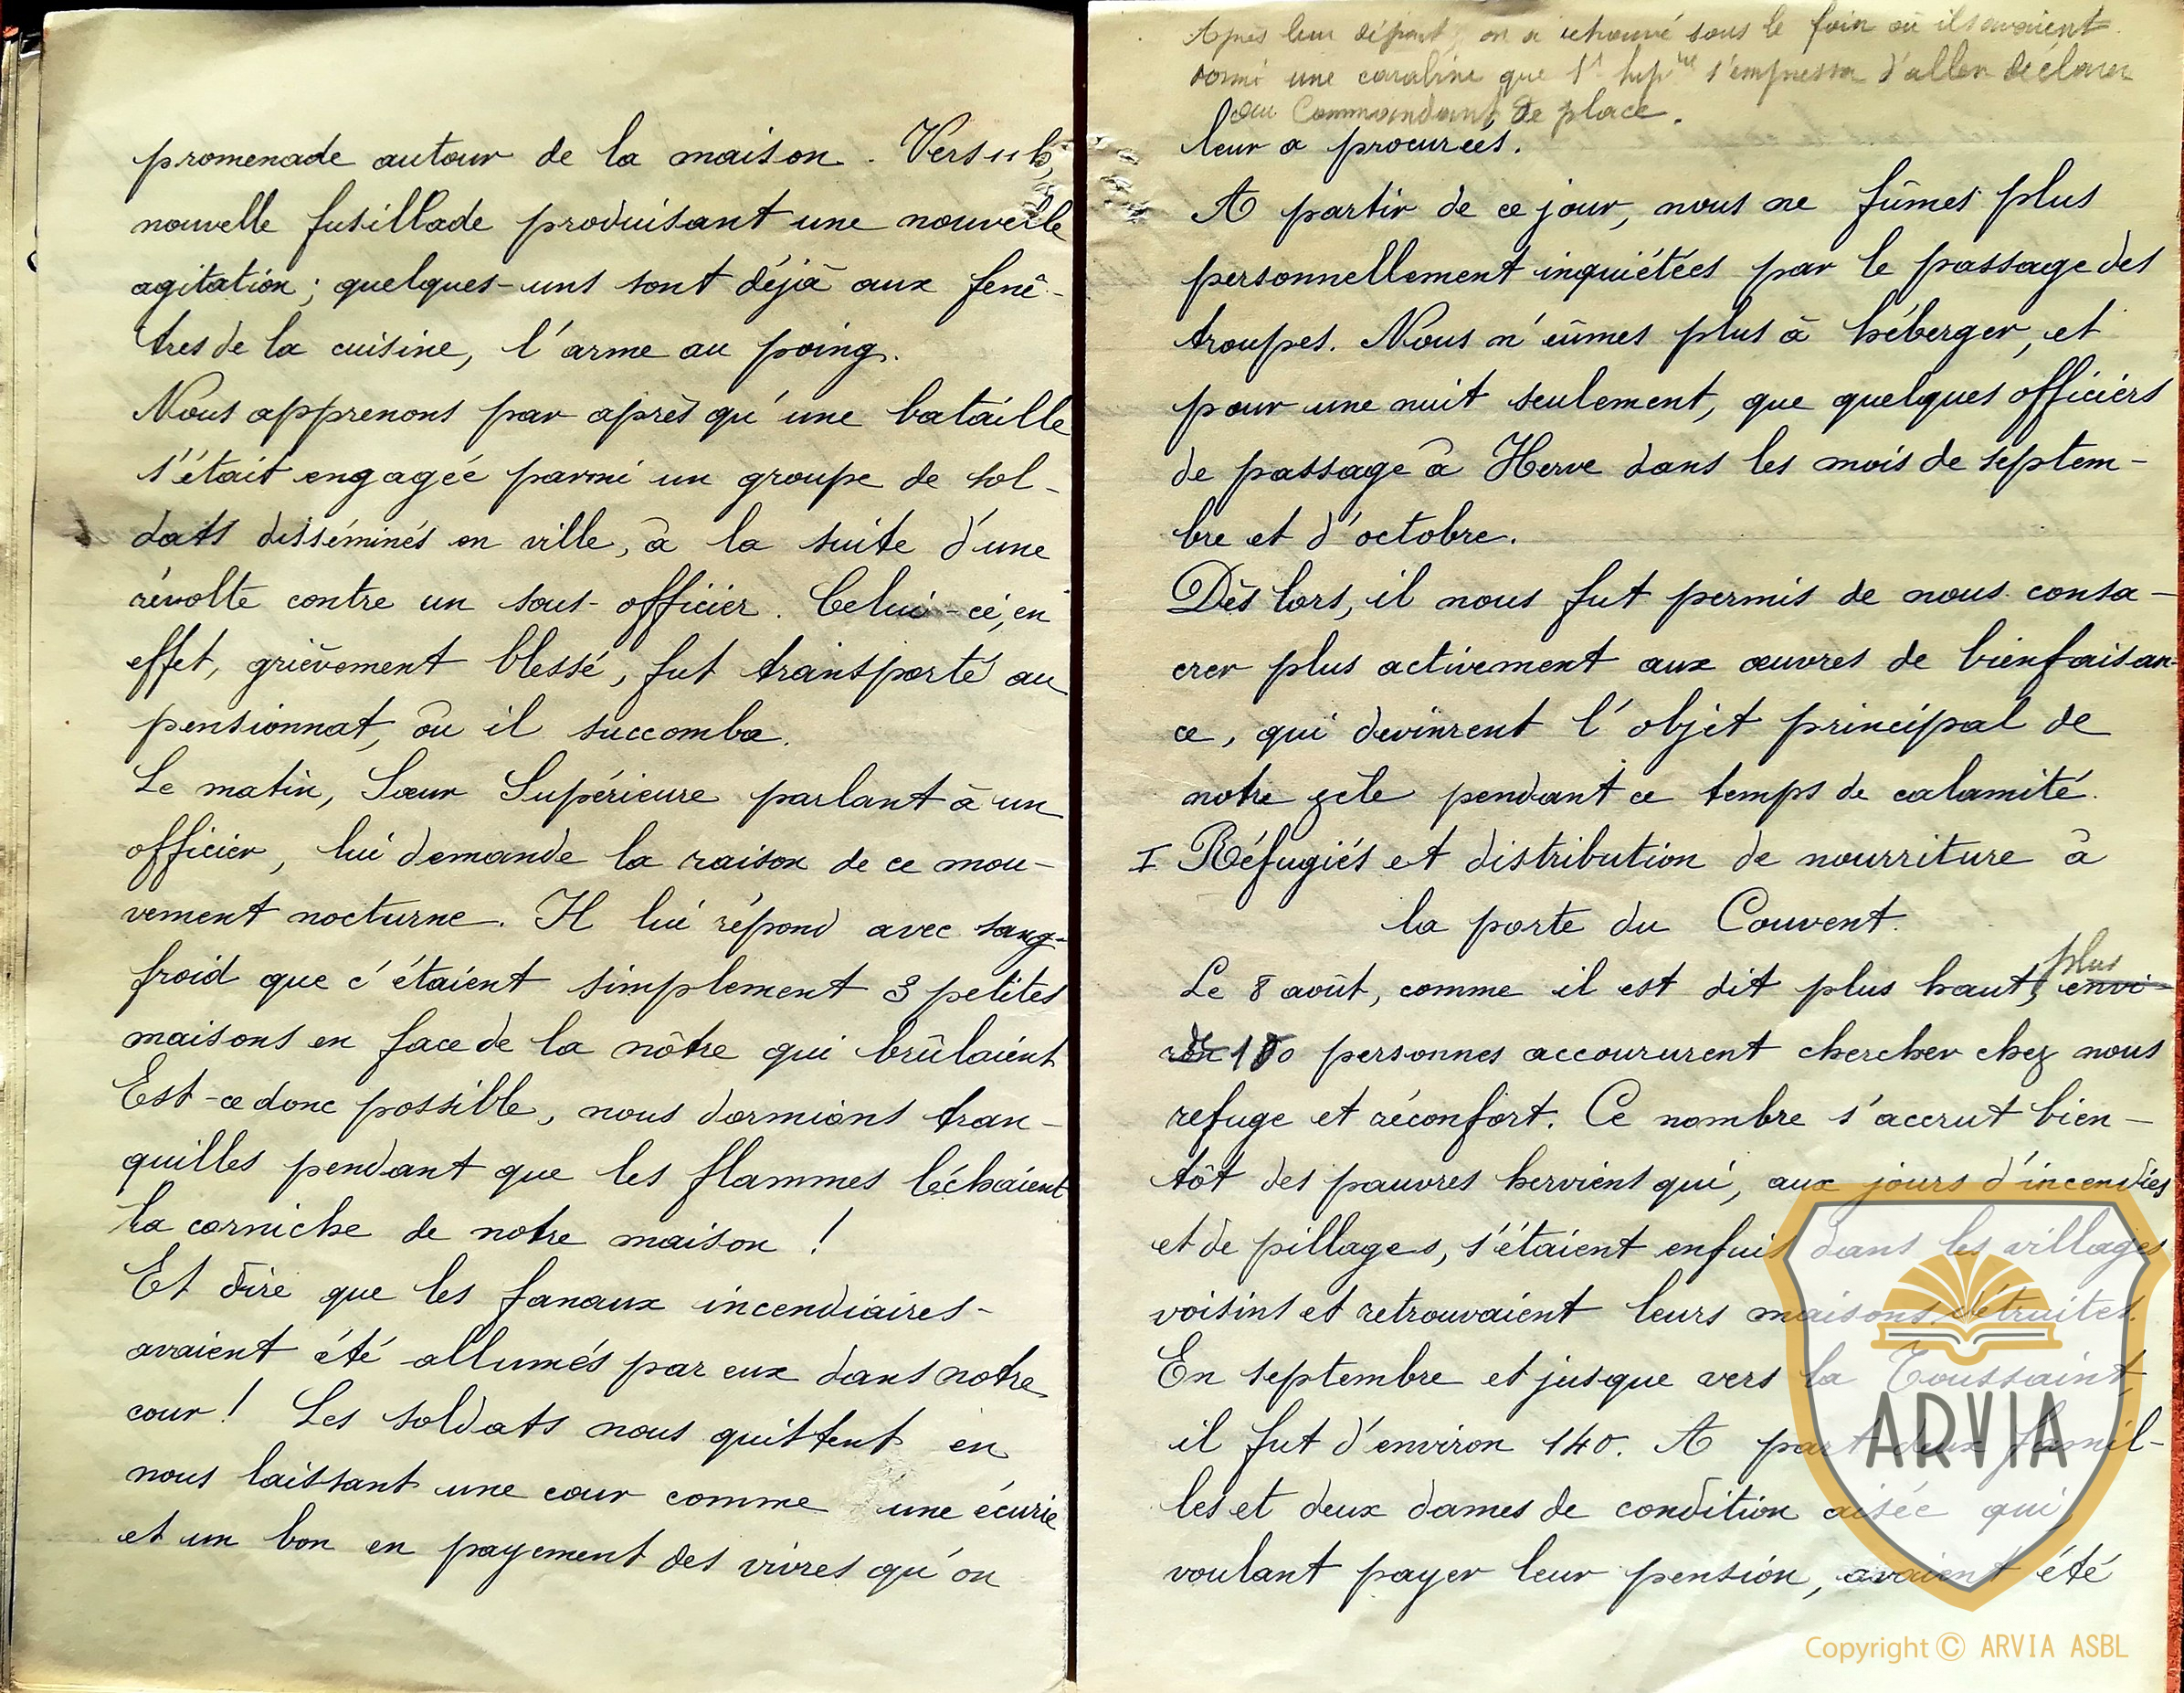 promenade autour de la maison. Vers 11 h,
nouvelle fusillade produisant une nouvelle
agitation; quelques-uns sont déjà aux fenê-
tres de la cuisine, l'arme au poing.
Nous apprenons par après qu'une bataille
s'était engagée parmi un groupe de sol-
dats disséminés en ville, à la suite d'une
révolte contre un sous-officier. Celui-ci, en
effet, grièvement blessé, fut transporté au
pensionnat, où il succomba.
Le matin, Sœur Supérieure parlant à un
officier, lui demande la raison de ce mou-
vement nocturne. Il lui répond avec sang-
froid que c'étaient simplement 3 petites
maisons en face de la nôtre qui brûlaient
Est-ce donc possible, nous dormions tran-
quilles pendant que les flammes léchaient
la corniche de notre maison !
Et dire que les fanaux incendiaires
avaient été allumés par eux dans notre
cour ! Les soldats nous quittent en
nous laissant une cour comme une écurie
et un bon en payement des vivres qu'on
Après leur départ, on a retrouvé sous le foin où ils avaient
dormi une carabine que Sr Supre s'empressa d'aller déclarer
au Commandant de place.
leur a procurés.
A partir de ce jour, nous ne fûmes plus
personnellement inquiétées par le passage des
troupes. Nous n'eûmes plus à héberger, et
pour une nuit seulement, que quelques officiers
de passage à Herve dans les mois de septem-
bre et d'octobre.
Dès lors, il nous fut permis de nous consa-
crer plus activement aux œuvres de bienfaisan-
ce, qui devinrent l'objet principal de
notre zèle pendant ce temps de calamité.
I Réfugiés et distribution de nourriture à
la porte du Couvent.
plus
Le 8 août, comme il est dit plus haut, envi-
ron de personnes accoururent chercher chez nous
refuge et réconfort. Ce nombre s'accrut bien-
tôt des pauvres herviens qui, aux jours d'incendies
et de pillages, s'étaient enfuis dans les villages
voisins et retrouvaient leurs maisons détruites.
En septembre et jusque vers la Toussaint,
il fut d'environ 140. A part deux famil-
les et deux dames de condition aisée qui,
voulant payer leur pension, avaient été
ARVIA
Copyright © ARVIA ASBL